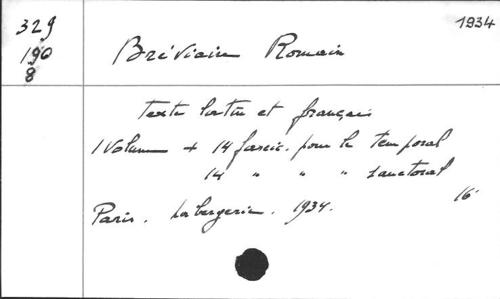 329
190
8
1934
Bréviaire Romain
Texte latin et français
1 Volume + 14 fascic. pour le temporal
14 " " " sanctoral
Paris. Labergerie. 1934.
16°